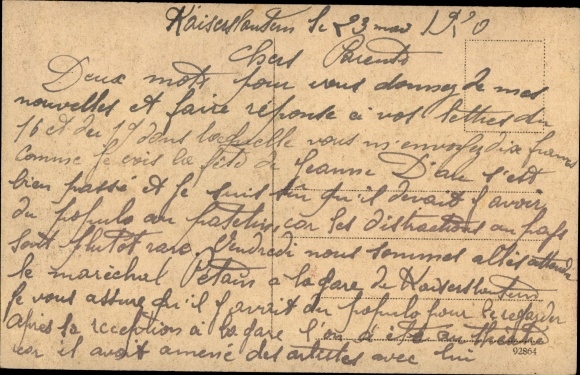 Kaiserslautern le 23 mai 1920
Chers Parents
Deux mots pour vous donnez de mes
nouvelles et faire réponse à vos lettres du
16 et du 19 dans laquelle vous m'envoyez dix francs
comme je vois la fête de Jeanne D'arc s'est
bien passé et je suis sur qu'il devait y avoir
du populo au patelin, car les distractions au pays
sont plutot rare. Vendredi nous sommes allés attendre
le maréchal Pétain a la gare de Kaiserslautern
Je vous assure qu'il y avait du populo pour le regarder
après la reception à la gare l'on a été au théatre
car il avait amené des artistes avec lui
92864